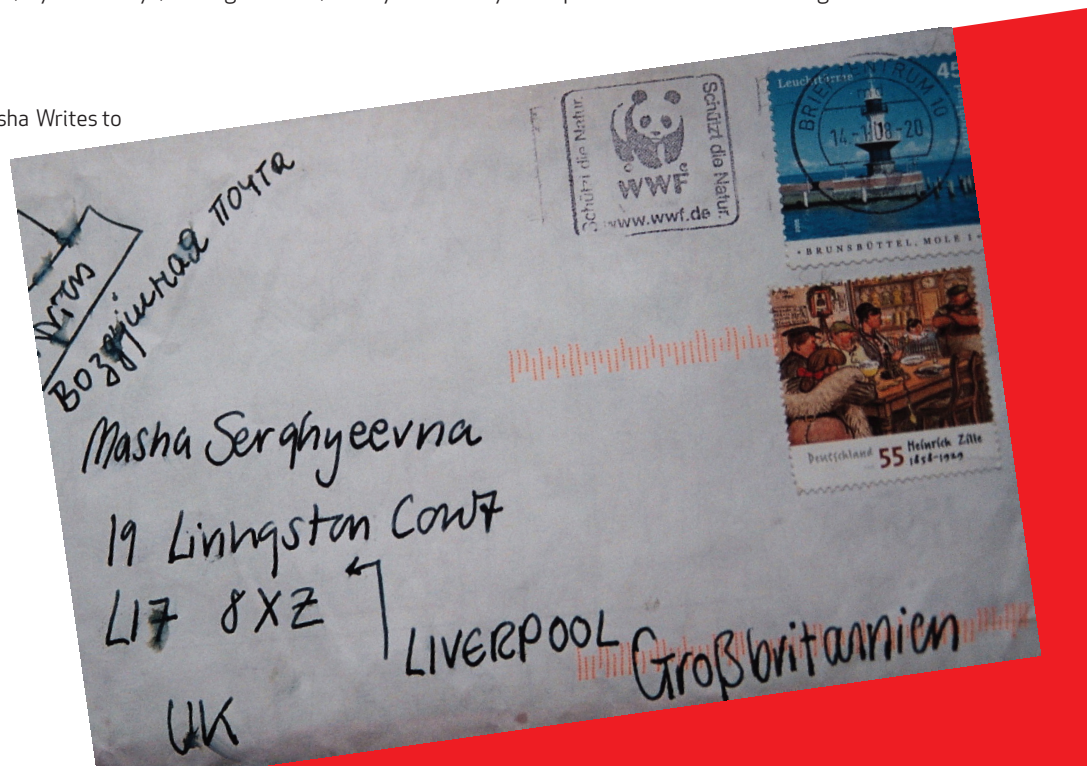 sha Writes to
Schützt die Natur.
WWF
www.wwf.de
Schützt die Natur.
Leuchttürme
45
BRIEFZENTRUM 10
14.-1.08-20
• BRUNSBÜTTEL, MOLE 1 •
Deutschland 55 Heinrich Zille
1858-1929
воздушная почта
Masha Serghyeevna
19 Livingston Court
L17 8XZ
LIVERPOOL
Großbritannien
UK